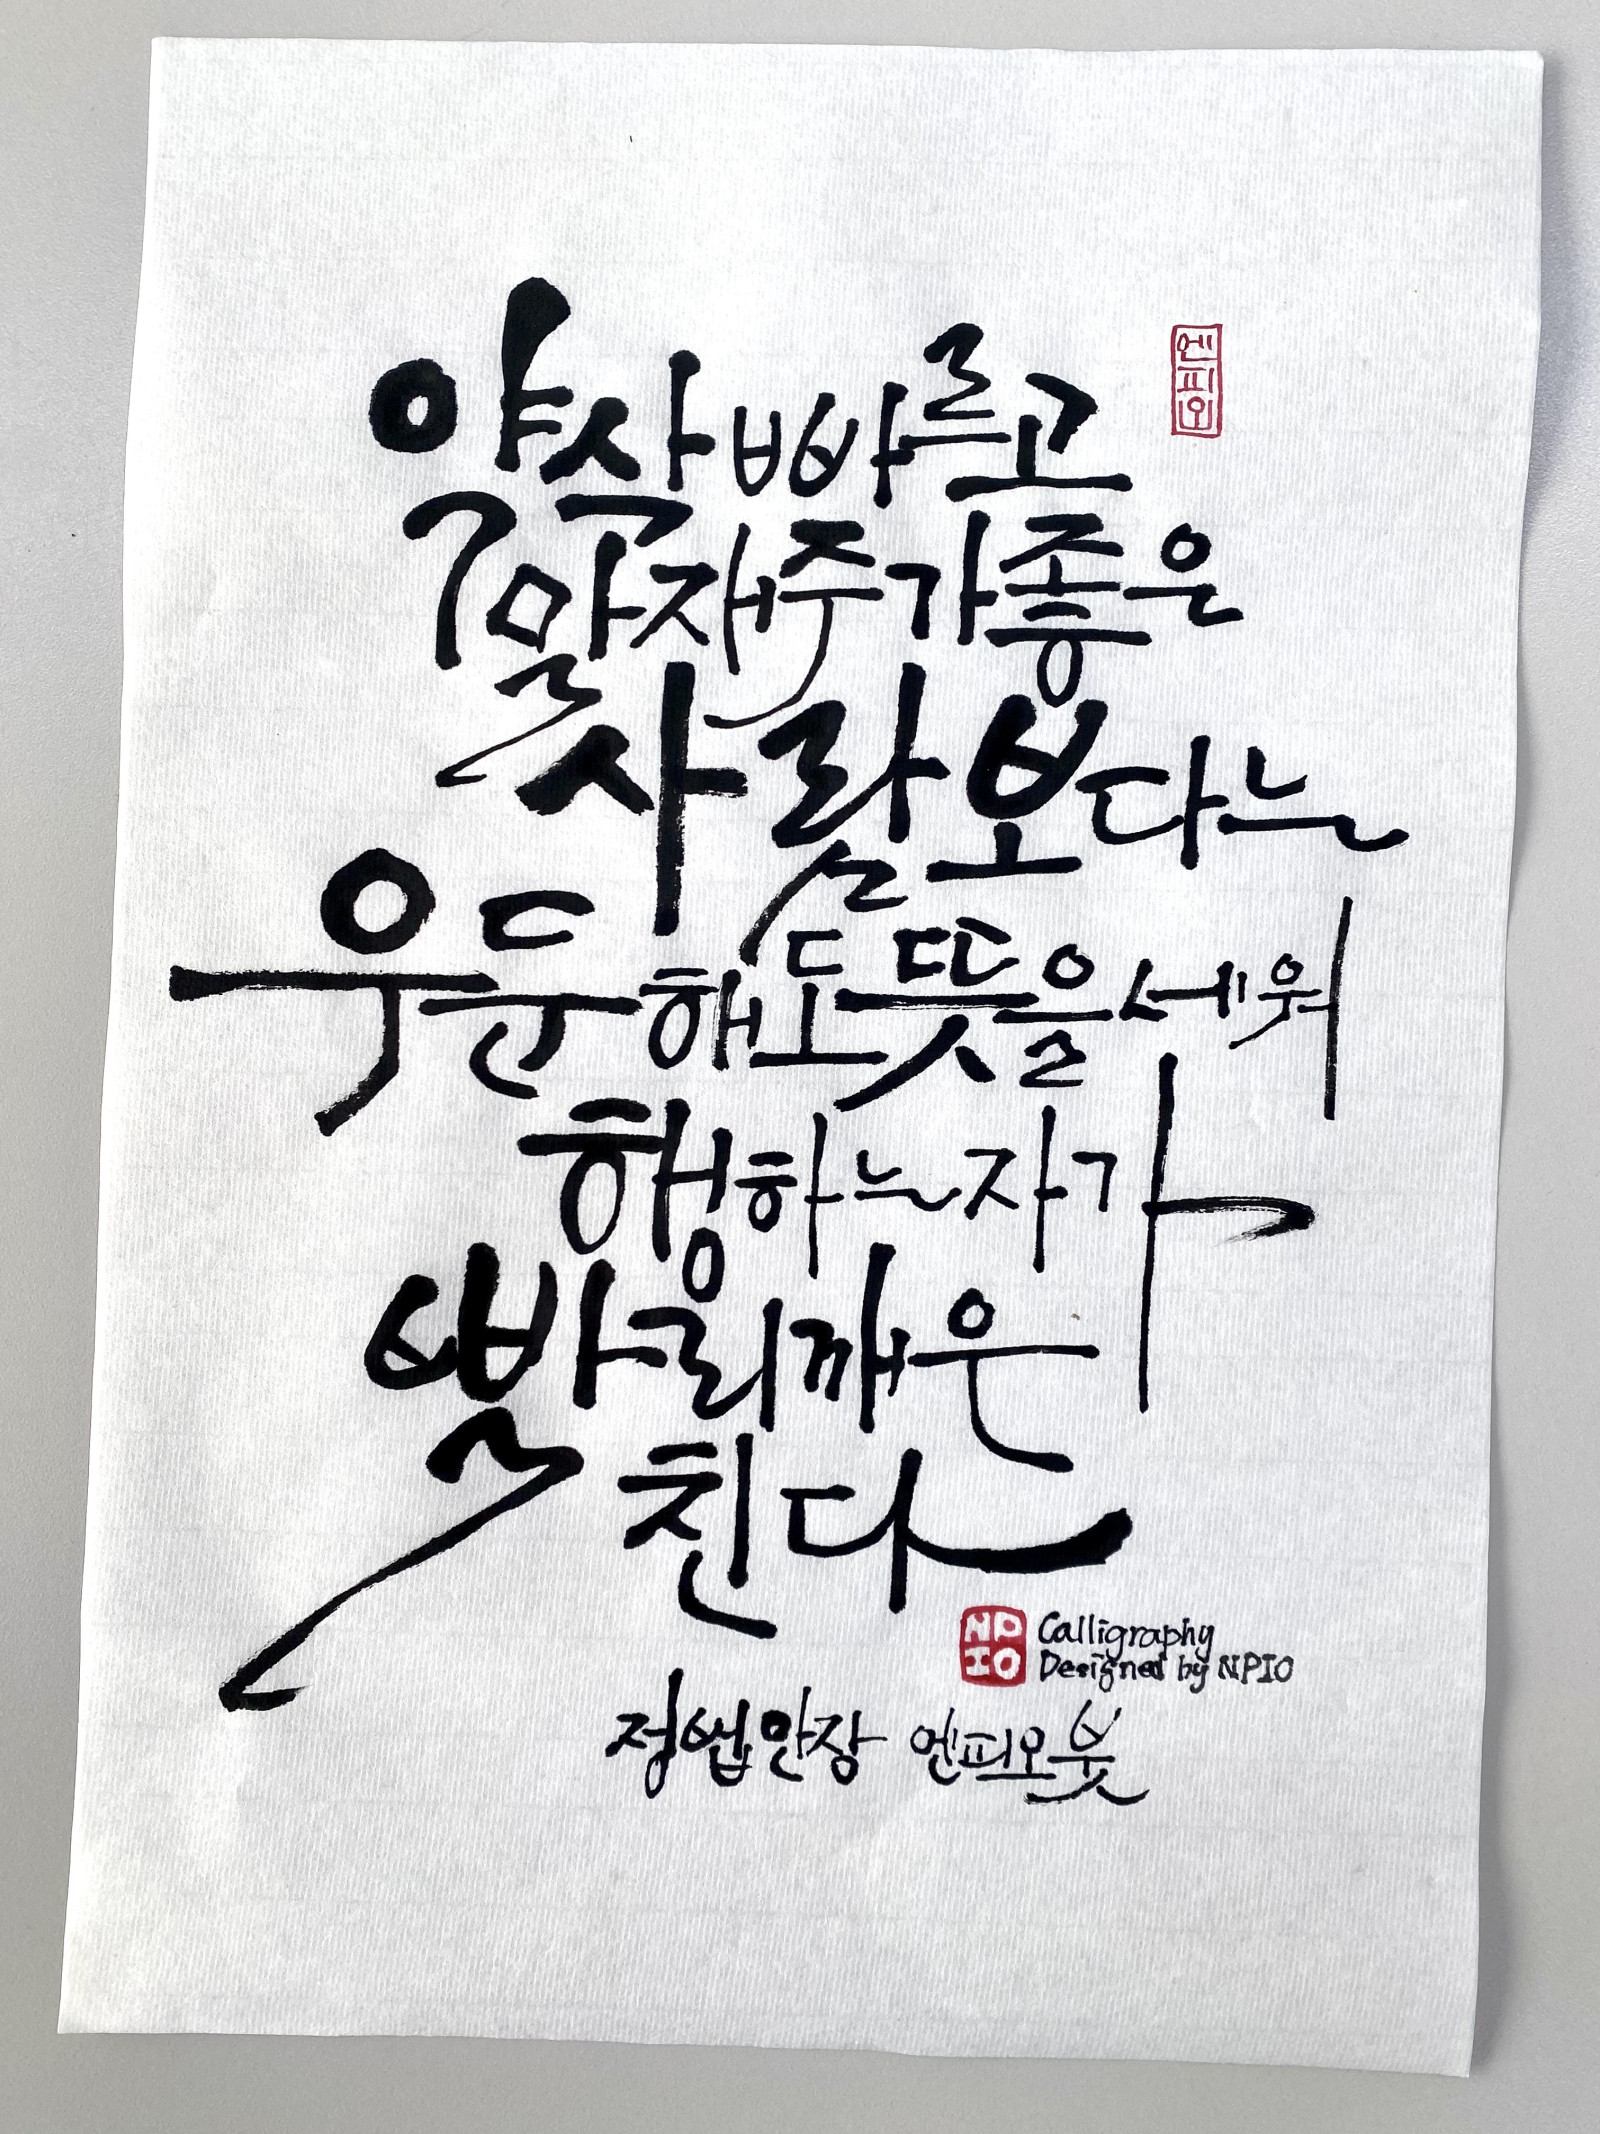 약삭빠르고
엔피오
말재주가좋은
사람보다는
우둔해도뜻을세워
행하는자가
빨리깨우
친다
NP
IO
Calligraphy
Designed by NPIO
정법안장 엔피오붓